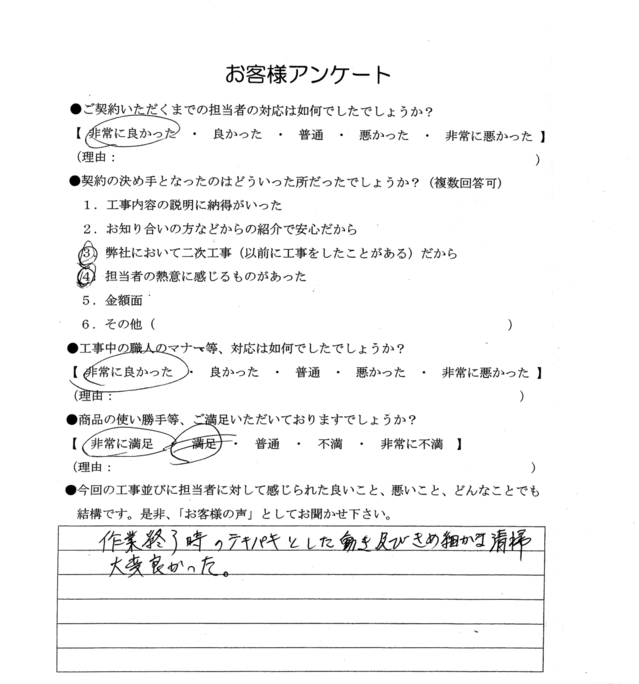 お客様アンケート
●ご契約いただくまでの担当者の対応は如何でしたでしょうか？
【 非常に良かった ・ 良かった ・ 普通 ・ 悪かった ・ 非常に悪かった 】
（理由： ）
●契約の決め手となったのはどういった所だったでしょうか？（複数回答可）
１．工事内容の説明に納得がいった
２．お知り合いの方などからの紹介で安心だから
③ 弊社において二次工事（以前に工事をしたことがある）だから
④ 担当者の熱意に感じるものがあった
５．金額面
６．その他（ ）
●工事中の職人のマナー等、対応は如何でしたでしょうか？
【 非常に良かった ・ 良かった ・ 普通 ・ 悪かった ・ 非常に悪かった 】
（理由： ）
●商品の使い勝手等、ご満足いただいておりますでしょうか？
【 非常に満足 ・ 満足 ・ 普通 ・ 不満 ・ 非常に不満 】
（理由： ）
●今回の工事並びに担当者に対して感じられた良いこと、悪いこと、どんなことでも
結構です。是非、「お客様の声」としてお聞かせ下さい。
作業終了時のテキパキとした動き及びきめ細かな清掃
大変良かった。